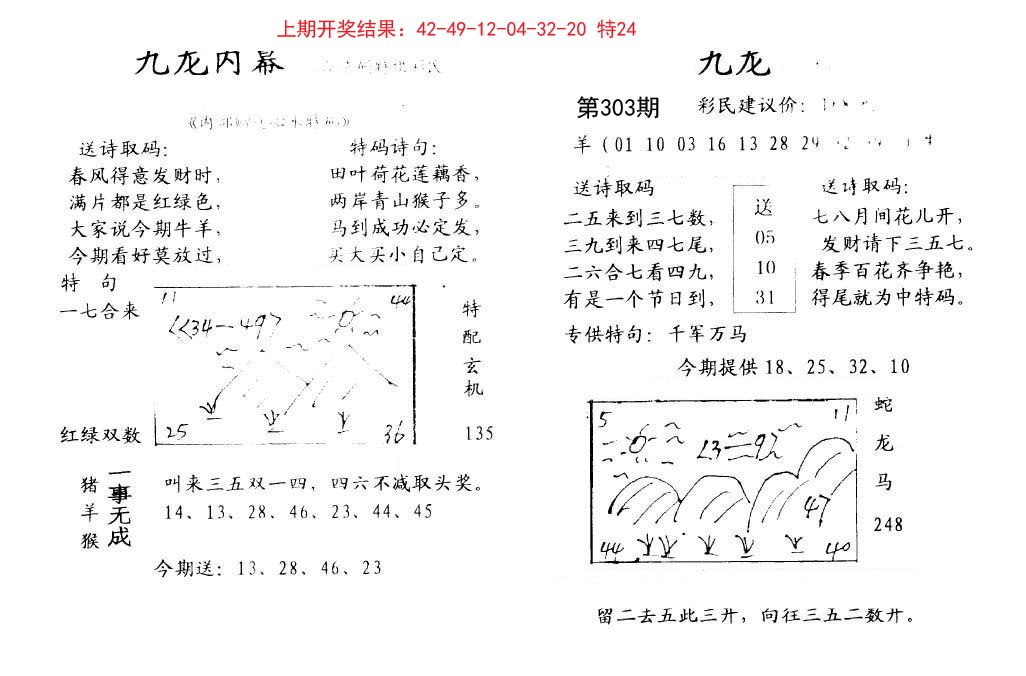 上期开奖结果：42-49-12-04-32-20 特24
九龙内幕
送诗取码：
春风得意发财时，
满片都是红绿色，
大家说今期牛羊，
今期看好莫放过，
特码诗句：
田叶荷花莲藕香，
两岸青山猴子多。
马到成功必定发，
买大买小自己定。
特 句
一七合来
红绿双数
11
44
《《34—49》
25
36
特
配
玄
机
135
猪
羊
猴
一事无成
叫来三五双一四，四六不减取头奖。
14、13、28、46、23、44、45
今期送：13、28、46、23
九龙
第303期
彩民建议价：
羊（01 10 03 16 13 28 29
送诗取码
二五来到三七数，
三九到来四七尾，
二六合七看四九，
有是一个节日到，
送
05
10
31
送诗取码：
七八月间花儿开，
发财请下三五七。
春季百花齐争艳，
得尾就为中特码。
专供特句：千军万马
今期提供18、25、32、10
5
11
47
44
40
蛇
龙
马
248
留二去五此三开，向往三五二数开。